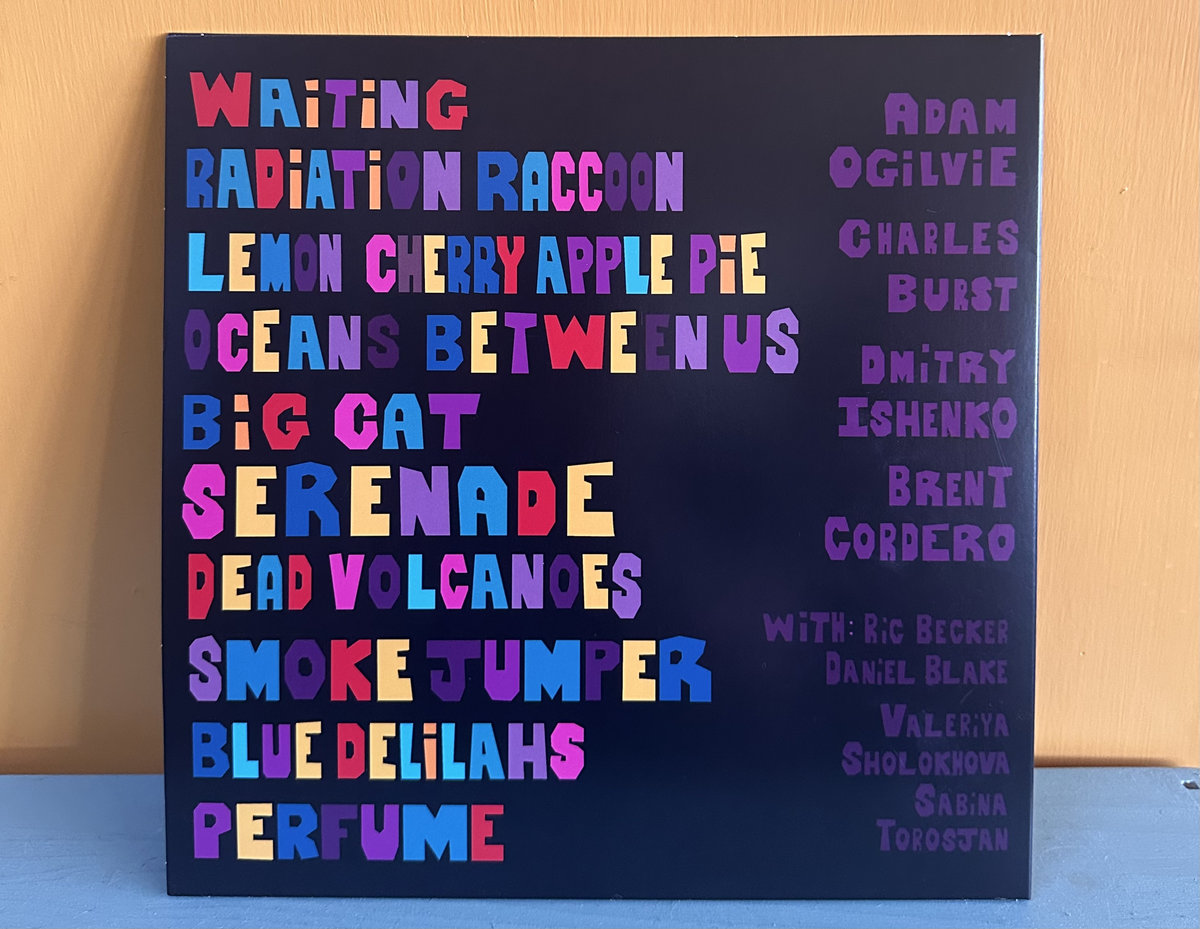 WAiTiNG
RADiATiON RACCOON
LEMON CHERRY APPLE PiE
OCEANS BETWEEN US
BiG CAT
SERENADE
DEAD VOLCANOES
SMOKE JUMPER
BLUE DELiLAHS
PERFUME
ADAM
OGiLViE
CHARLES
BURST
DMiTRY
ISHENKO
BRENT
CORDERO
WiTH: RiC BECKER
DANiEL BLAKE
VALERiYA
SHOLOKHOVA
SABiNA
TOROSJAN